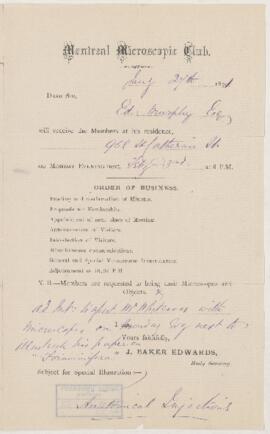 Montreal Microscopic Club.
Jany 27th 187
Dear Sir,
Edw. Murphy Esq
will receive the Members at his residence,
960 St Catherine St
on Monday Evening next, 2nd, at 8 P.M.
ORDER OF BUSINESS.
Reading and confirmation of Minutes.
Proposals for Membership.
Appointment of next place of Meeting.
Announcement of Visitors.
Introduction of Visitors.
Miscellaneous communications.
General and Special Microscopic Examination.
Adjournment at 10.30 P.M.
N.B.—Members are requested to bring their Microscopes and
Objects. &
Mr Whiteaves with
Microscopes on Monday next to
illustrate his paper on
Yours faithfully,
"Foraminifera"
J. BAKER EDWARDS,
Hon'y Secretary.
Subject for Special Illustration:—
Anatomical Injections